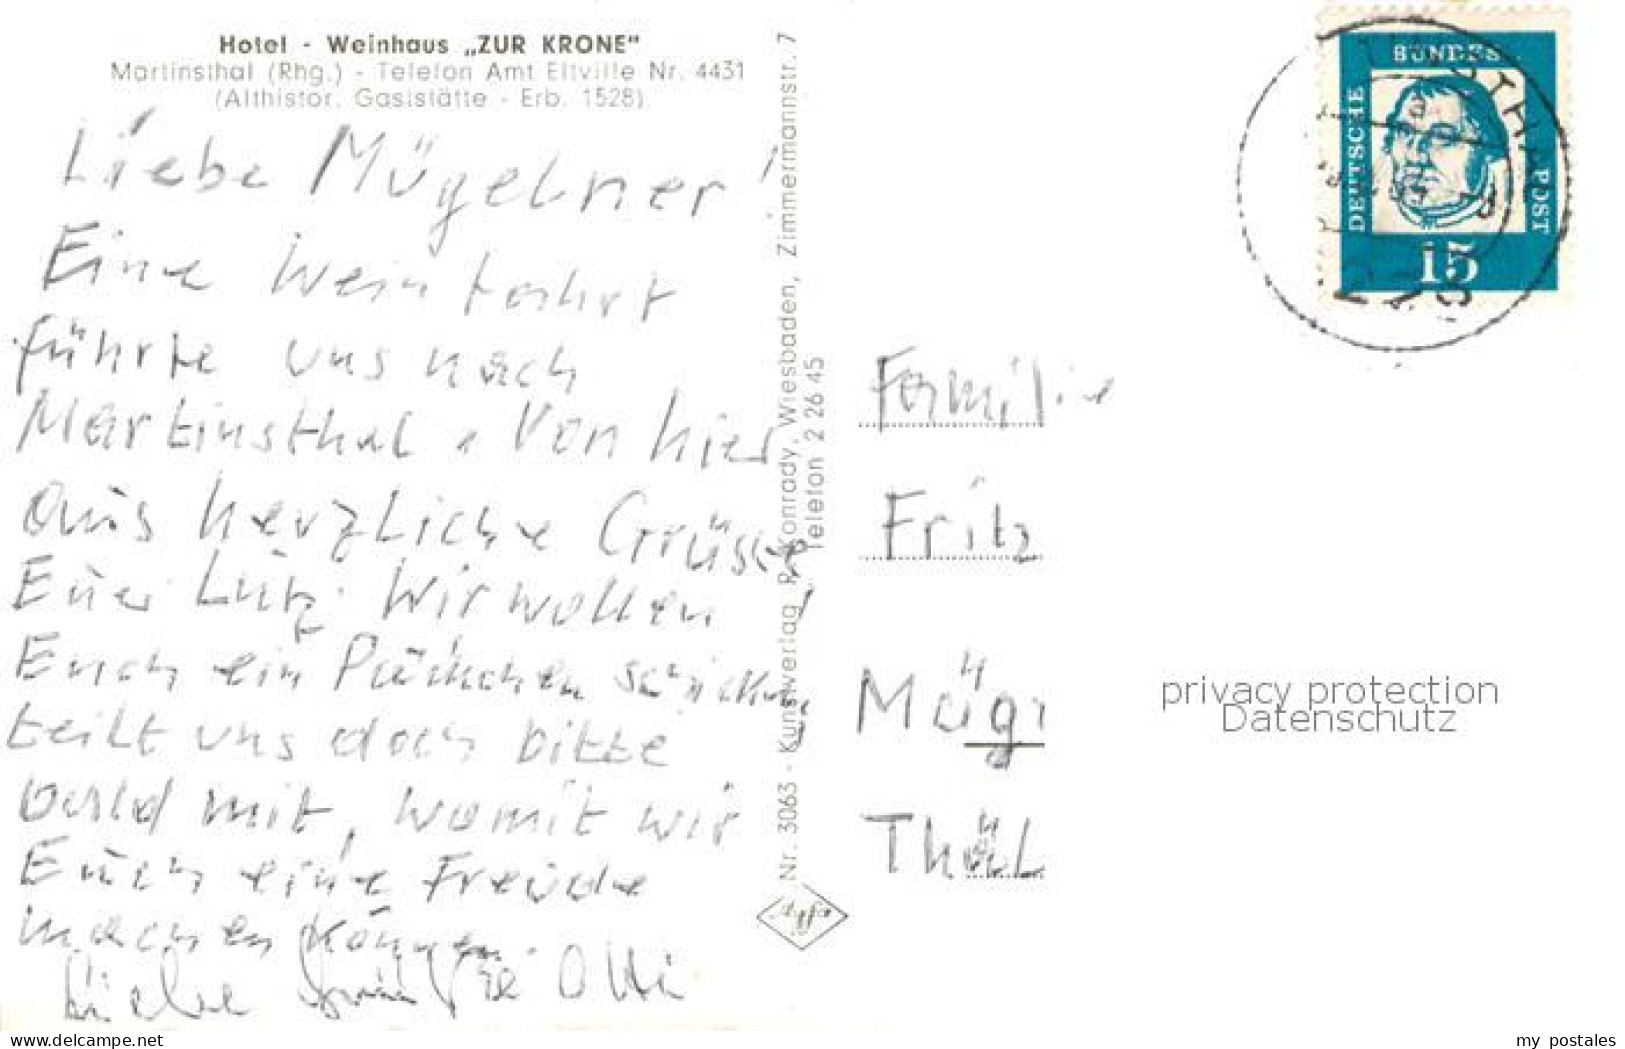 Hotel - Weinhaus „ZUR KRONE"
Martinsthal (Rhg.) - Telefon Amt Eltville Nr. 4431
(Althistor. Gaststätte - Erb. 1528)
Liebe Mügelner!
Eine Weinfahrt
führte uns nach
Martinsthal. Von hier
aus herzliche Grüsse
Euer Lutz. Wir wollen
Euch ein Päckchen schicken,
teilt uns doch bitte
bald mit, womit wir
Euch eine Freude
machen können.
Liebe Grüße Otti
Nr. 3063 - Kunstverlag R. Konrady, Wiesbaden, Zimmermannstr. 7
Telefon 2 26 45
Agfa
DEUTSCHE
BUNDES
POST
15
Familie
Fritz
Müg
Thäl
privacy protection
Datenschutz
www.delcampe.net
my_postales